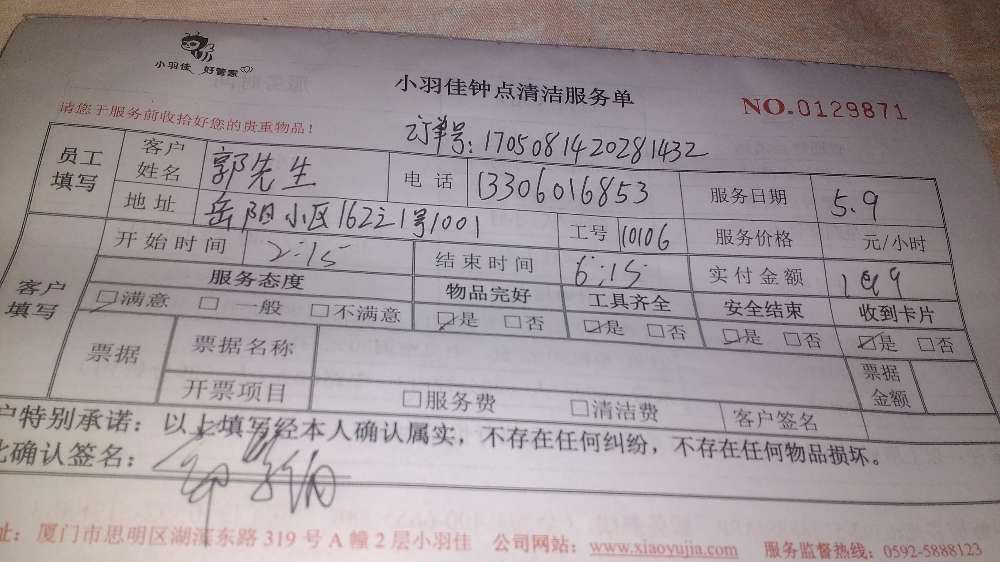 小羽佳 好管家
小羽佳钟点清洁服务单
NO.0129871
请您于服务前收拾好您的贵重物品！
订单号：1705081420281432
员工填写 客户姓名 郭先生 电话 13306016853 服务日期 5.9
地址 岳阳小区162之1号1001 工号 10106 服务价格 元/小时
客户填写 开始时间 2:15 结束时间 6:15 实付金额
服务态度 物品完好 工具齐全 安全结束 收到卡片
☑满意 □一般 □不满意 ☑是 □否 ☑是 □否 ☑是 □否 ☑是 □否
票据 票据名称 票据金额
开票项目 □服务费 □清洁费 客户签名
户特别承诺：以上填写经本人确认属实，不存在任何纠纷，不存在任何物品损坏。
此确认签名：
址：厦门市思明区湖滨东路319号A幢2层小羽佳 公司网站：www.xiaoyujia.com 服务监督热线：0592-5888123